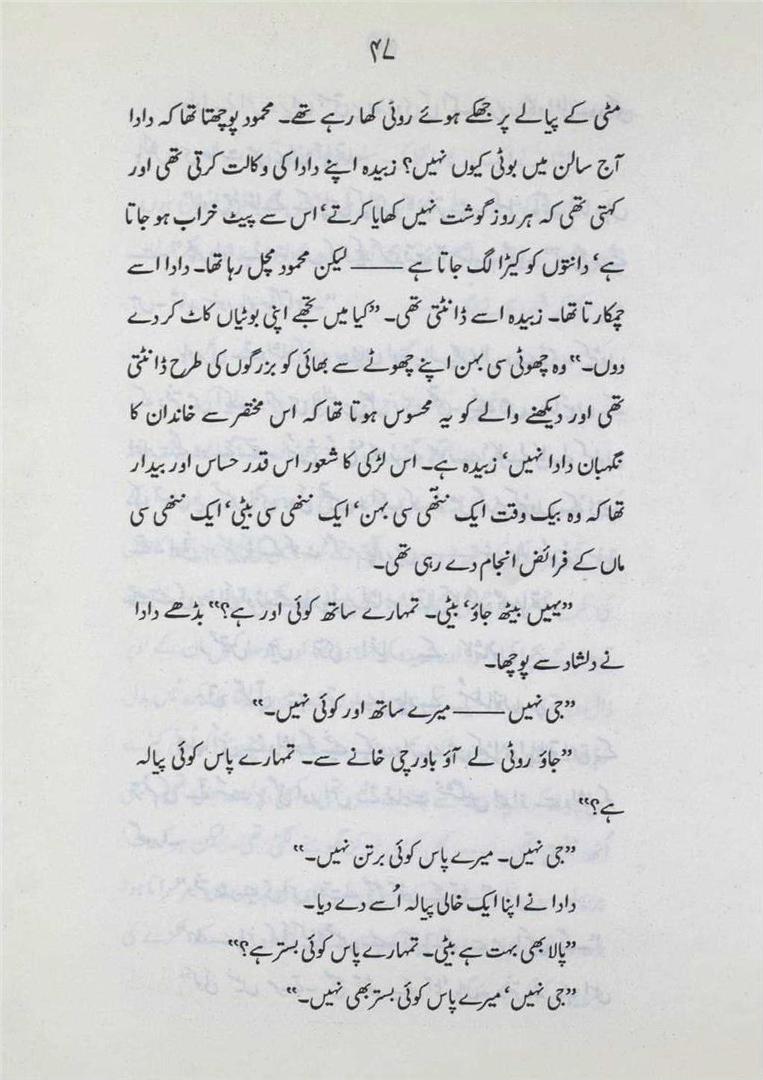 ۴۷
مٹی کے پیالے پر جھکے ہوئے روٹی کھا رہے تھے۔ محمود پوچھتا تھا کہ دادا
آج سالن میں بوٹی کیوں نہیں؟ زبیدہ اپنے دادا کی وکالت کرتی تھی اور
کہتی تھی کہ ہر روز گوشت نہیں کھایا کرتے‘ اس سے پیٹ خراب ہو جاتا
ہے‘ دانتوں کو کیڑا لگ جاتا ہے ——— لیکن محمود مچل رہا تھا۔ دادا اسے
چمکارتا تھا۔ زبیدہ اسے ڈانٹتی تھی۔ ”کیا میں تجھے اپنی بوٹیاں کاٹ کر دے
دوں۔“ وہ چھوٹی سی بہن اپنے چھوٹے سے بھائی کو بزرگوں کی طرح ڈانٹتی
تھی اور دیکھنے والے کو یہ محسوس ہوتا تھا کہ اس مختصر سے خاندان کا
نگہبان دادا نہیں‘ زبیدہ ہے۔ اس لڑکی کا شعور اس قدر حساس اور بیدار
تھا کہ وہ بیک وقت ایک ننھّی سی بہن‘ ایک ننھی سی بیٹی‘ ایک ننھی سی
ماں کے فرائض انجام دے رہی تھی۔
”یہیں بیٹھ جاؤ‘ بیٹی۔ تمہارے ساتھ کوئی اور ہے؟“ بڈھے دادا
نے دلشاد سے پوچھا۔
”جی نہیں ——— میرے ساتھ اور کوئی نہیں۔“
”جاؤ روٹی لے آؤ باورچی خانے سے۔ تمہارے پاس کوئی پیالہ
ہے؟“
”جی نہیں۔ میرے پاس کوئی برتن نہیں۔“
دادا نے اپنا ایک خالی پیالہ اُسے دے دیا۔
”پالا بھی بہت ہے بیٹی۔ تمہارے پاس کوئی بستر ہے؟“
”جی نہیں‘ میرے پاس کوئی بستر بھی نہیں۔“